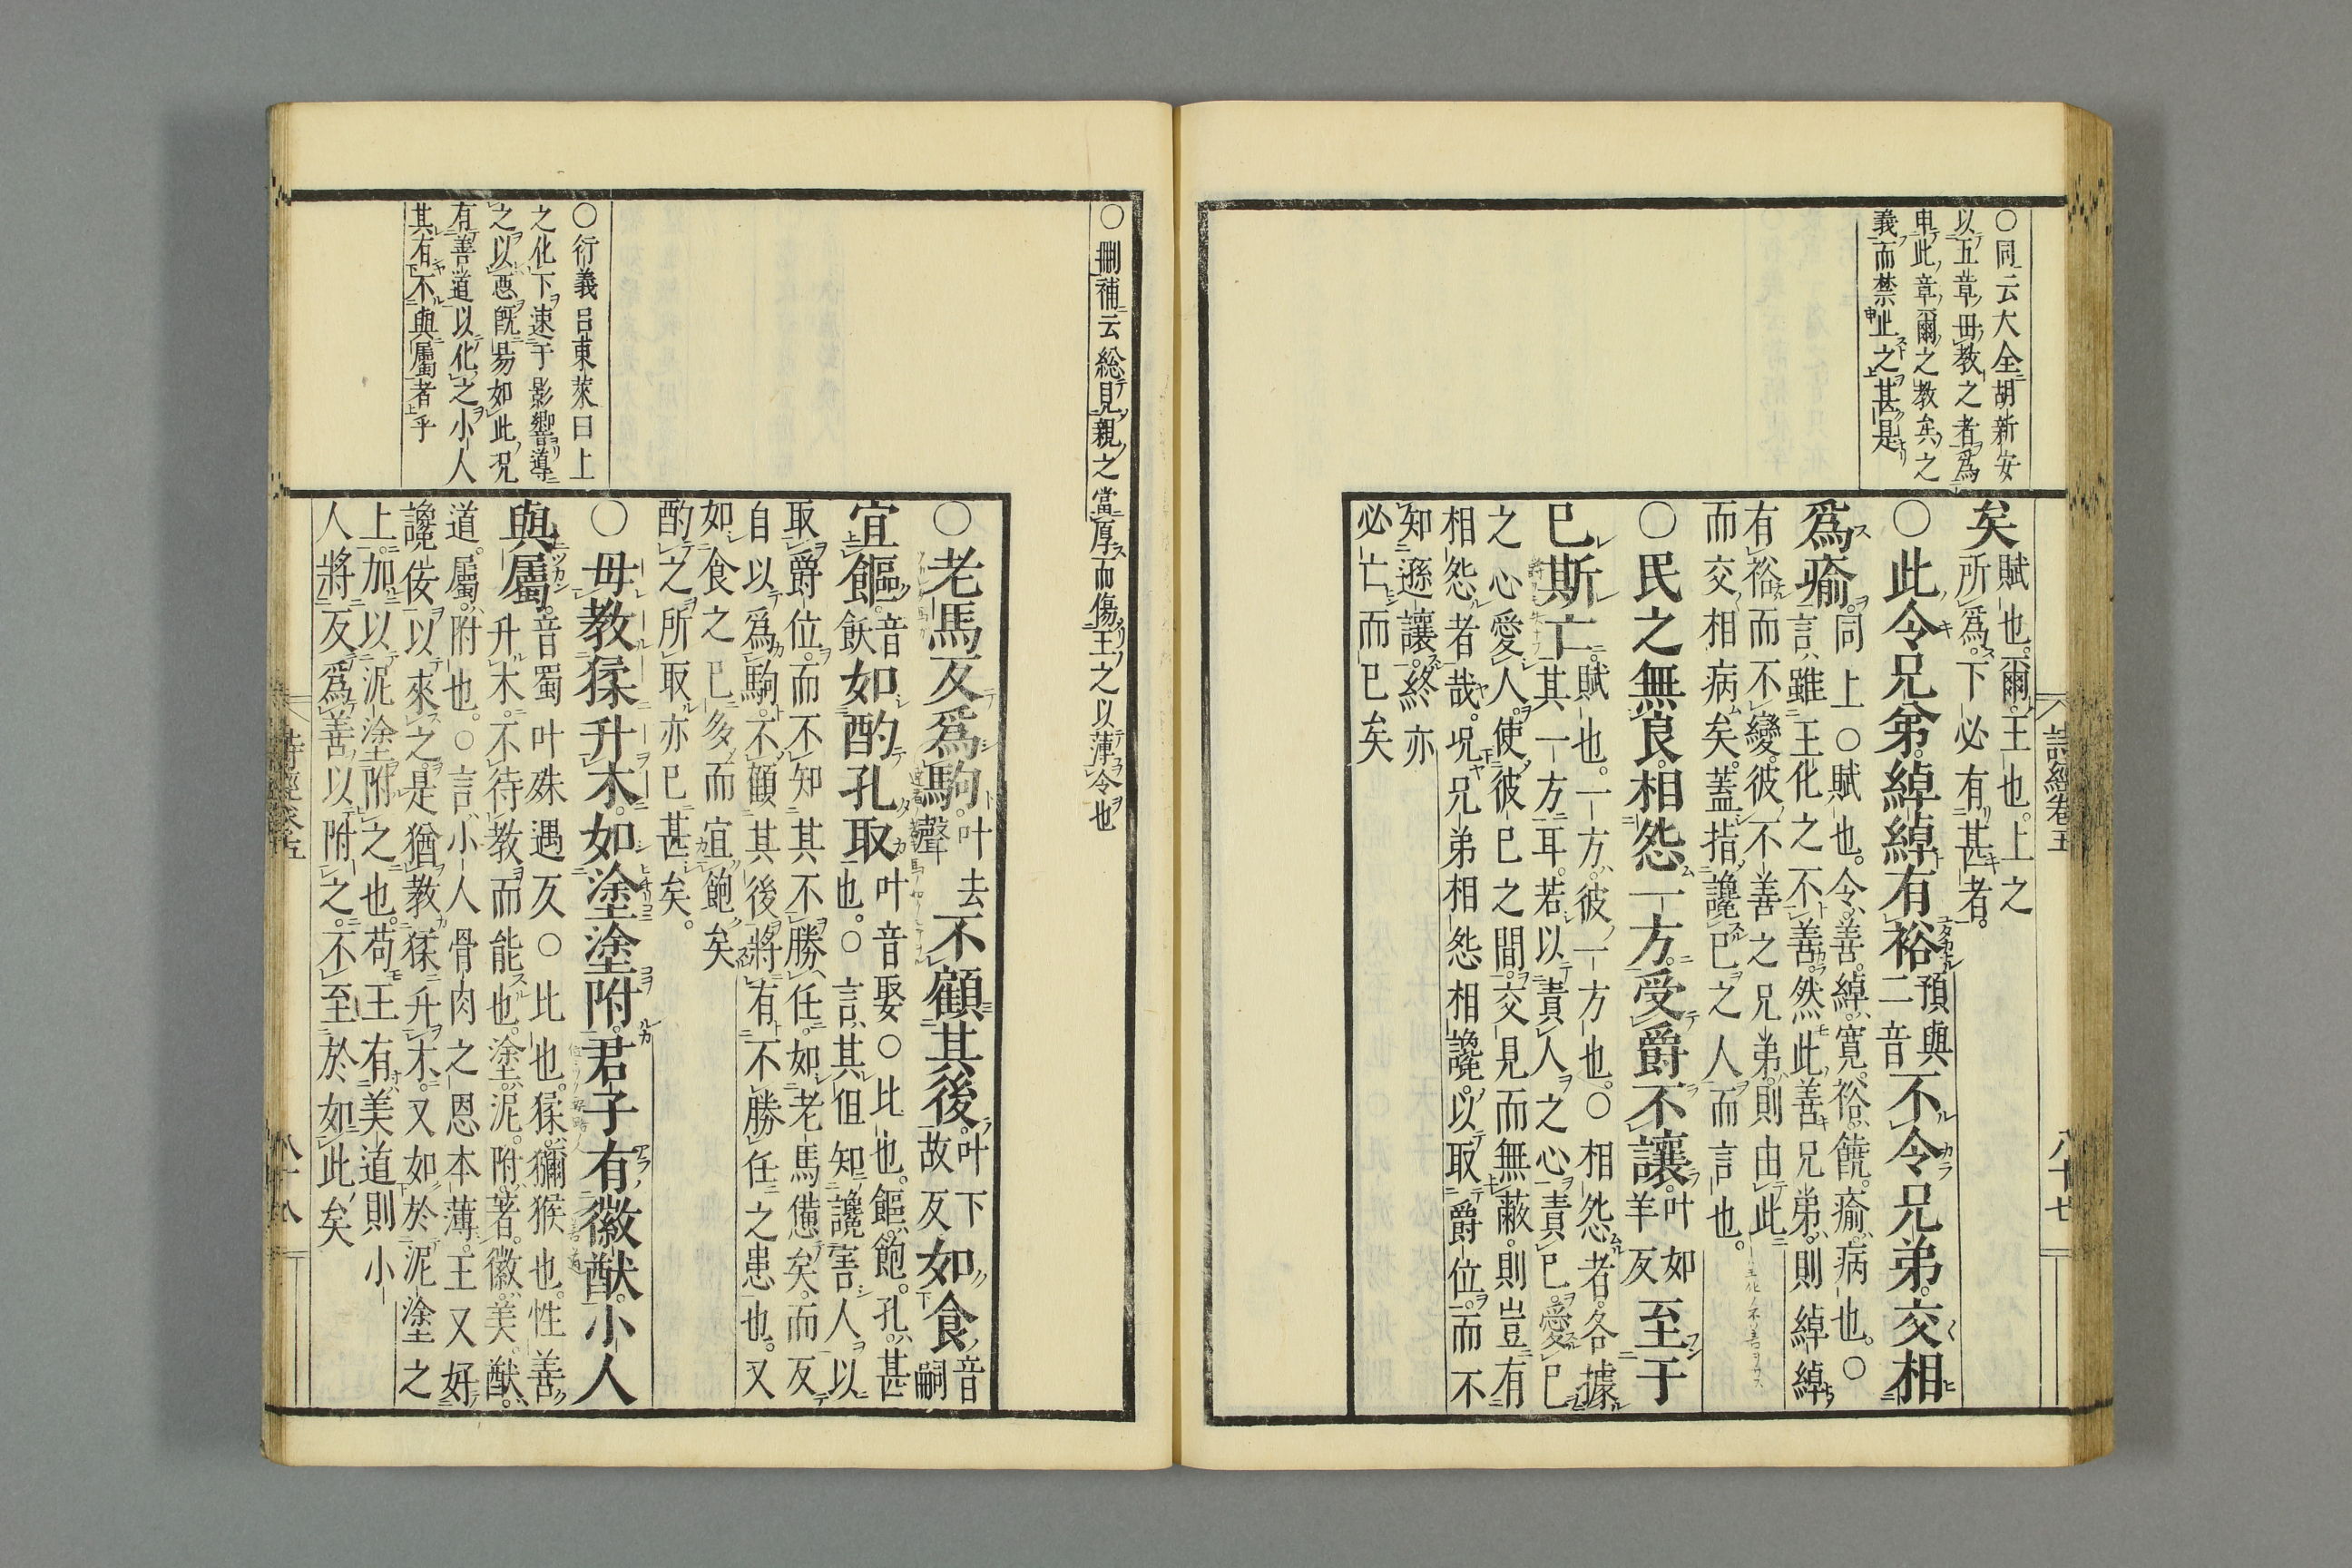 詩經卷五
八十七
○同云大全胡新安
以五章毋教之者爲
申此章爾之教矣之
義而禁止之甚是
矣
賦也爾王也上之
所爲下必有甚者
○此令兄弟綽綽有裕
預與
二音
不令兄弟交相
爲瘉
同上○賦也令善綽寬裕饒瘉病也○
言雖王化之不善然此善兄弟則綽綽
有裕而不變彼不善之兄弟則由此
而交相病矣蓋指讒已之人而言也
○民之無良相怨一方受爵不讓
叶如
羊反
至于
已斯亡
賦也一方彼一方也○相怨者各據
其一方耳若以責人之心責已愛已
之心愛人使彼已之間交見而無蔽則豈有
相怨者哉况兄弟相怨相讒以取爵位而不
知遜讓終亦
必亡而已矣
○刪補云総見親之當厚而傷王之以薄令也
○老馬反爲駒
叶去
聲
不顧其後
叶下
故反
如食
音
嗣
宜饇
音
飫
如酌孔取
叶音娶○比也饇飽孔甚
也○言其但知讒害人以
取爵位而不知其不勝任如老馬憊矣而反
自以爲駒不顧其後將有不勝任之患也又
如食之已多而宜飽矣
酌之所取亦已甚矣
○衍義呂東萊曰上
之化下速于影響導
之以惡旣易如此况
有善道以化之小人
其有不與屬者乎
○毋教猱升木如塗塗附君子有徽猷小人
與屬
音蜀叶殊遇反○比也猱獼猴也性善
升木不待教而能也塗泥附著徽美猷
道屬附也○言小人骨肉之恩本薄王又好
讒佞以來之是猶教猱升木又如於泥塗之
上加以泥塗附之也苟王有美道則小
人將反爲善以附之不至於如此矣
詩經卷五
八十八